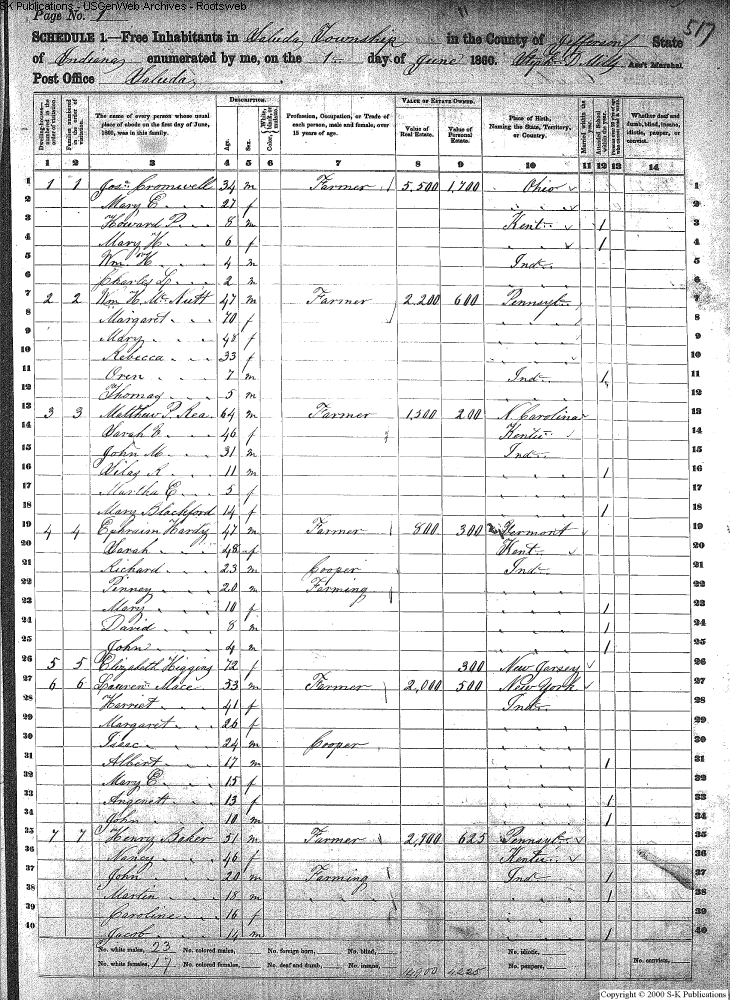 S-K Publications - USGenWeb Archives - Rootsweb
Page No. 1
517
SCHEDULE 1.—Free Inhabitants in Saluda Township in the County of Jefferson State
of Indiana enumerated by me, on the 1 day of June 1860. Ass't Marshal.
Post Office Saluda
Dwelling-houses— numbered in the order of visitation.
Families numbered in the order of visitation.
The name of every person whose usual place of abode on the first day of June, 1860, was in this family.
DESCRIPTION.
Age.
Sex.
Color, White, black, or mulatto.
Profession, Occupation, or Trade of each person, male and female, over 15 years of age.
VALUE OF ESTATE OWNED.
Value of Real Estate.
Value of Personal Estate.
Place of Birth, Naming the State, Territory, or Country.
Married within the year.
Attended School within the year.
Whether deaf and dumb, blind, insane, idiotic, pauper, or convict.
1 2 3 4 5 6 7 8 9 10 11 12 13 14
1 1 1 Jos. Cromwell 34 m Farmer 5,500 1,700 Ohio 1
2 Mary E. 27 f " " 2
3 Howard P. 8 m Kent 1 3
4 Mary H. 6 f " " 1 4
5 Wm H. 4 m Ind 5
6 Charley L. 2 m " " 6
7 2 2 Wm H. McNutt 47 m Farmer 2,200 600 Pennsyl 7
8 Margaret 70 f " " 8
9 Mary 48 f " " 9
10 Rebecca 33 f " " 10
11 Oren 7 m Ind 1 11
12 Thomas 5 m " " 12
13 3 3 Matthew P. Rea 64 m Farmer 1,500 200 N. Carolina 13
14 Sarah E. 46 f Kentu 14
15 John M. 31 m Ind 15
16 Silas R. 11 m " " 1 16
17 Martha E. 5 f " " 17
18 Mary Blackford 14 f " " 1 18
19 4 4 Ephraim Hardy 47 m Farmer 800 300 Vermont 19
20 Sarah 48 f Kent 20
21 Richard 23 m Cooper Ind 21
22 Pinney 20 m Farming " " 22
23 Mary 10 f " " 1 23
24 David 8 m " " 1 24
25 John 4 m " " 1 25
26 5 5 Elizabeth Higgins 72 f 300 New Jersey 26
27 6 6 Mace 53 m Farmer 2,000 500 New York 27
28 Harriet 41 f Ind 28
29 Margaret 26 f " " 29
30 Isaac 24 m Cooper " " 30
31 Albert 17 m " " 1 31
32 Mary E. 15 f " " 32
33 Angenett 13 f " " 1 33
34 John 10 m " " 1 34
35 7 7 Henry Baker 51 m Farmer 2,900 625 Pennsyl 35
36 Nancy 46 f Kentu 36
37 John 20 m Farming Ind 1 37
38 Martin 18 m " " 1 38
39 Caroline 16 f " " 39
40 Jacob 14 m " " 1 40
No. white males, 23 No. colored males, No. foreign born, No. blind, No. idiotic,
No. white females, 17 No. colored females, No. deaf and dumb, No. insane, 14900 4225 No. paupers, No. convicts,
Copyright © 2000 S-K Publications